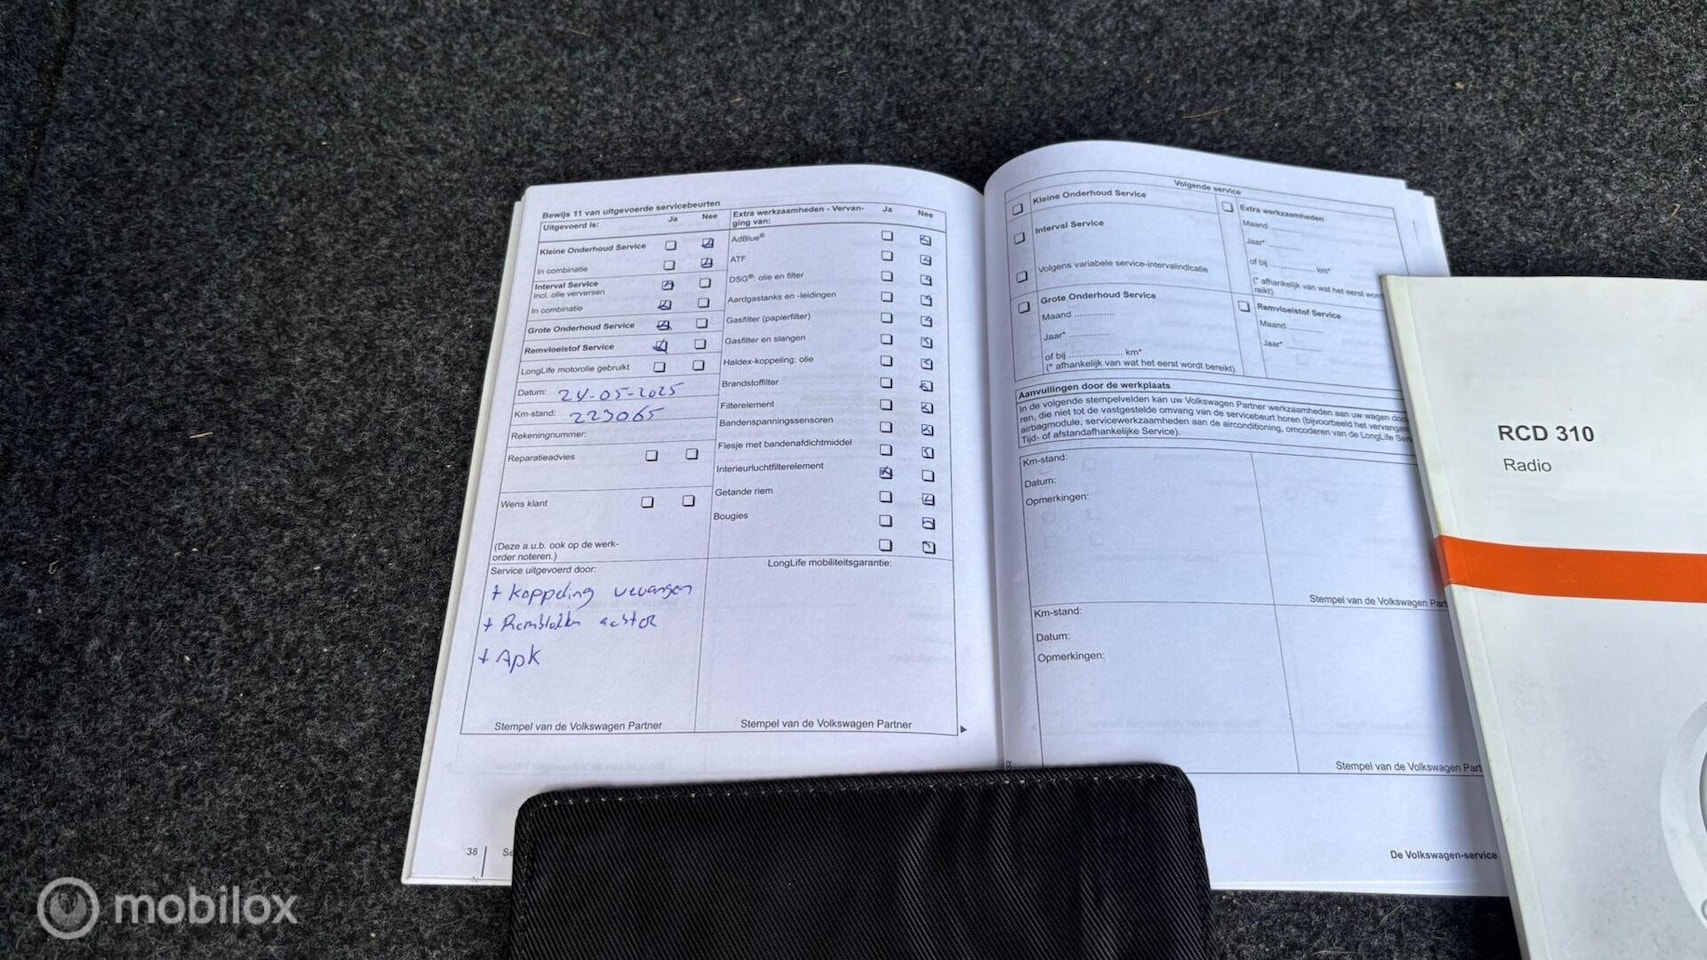 Bewijs 11 van uitgevoerde servicebeurten
Uitgevoerd is: Ja Nee
Kleine Onderhoud Service
In combinatie
Interval Service
incl. olie verversen
In combinatie
Grote Onderhoud Service
Remvloeistof Service
LongLife motorolie gebruikt
Datum: 24-05-2025
Km-stand: 223065
Rekeningnummer:
Reparatieadvies
Wens klant
(Deze a.u.b. ook op de werk-
order noteren.)
Service uitgevoerd door:
+ Koppeling vervangen
+ Remblokken achter
+ Apk
Stempel van de Volkswagen Partner
Extra werkzaamheden - Vervan-
ging van: Ja Nee
AdBlue®
ATF
DSG®: olie en filter
Aardgastanks en -leidingen
Gasfilter (papierfilter)
Gasfilter en slangen
Haldex-koppeling: olie
Brandstoffilter
Filterelement
Bandenspanningssensoren
Flesje met bandenafdichtmiddel
Interieurluchtfilterelement
Getande riem
Bougies
LongLife mobiliteitsgarantie:
Stempel van de Volkswagen Partner
38
Volgende service
Kleine Onderhoud Service
Interval Service
Volgens variabele service-intervalindicatie
Grote Onderhoud Service
Maand ...............
Jaar* ...............
of bij .................... km*
(* afhankelijk van wat het eerst wordt bereikt)
Extra werkzaamheden:
Maand
Jaar*
of bij .................... km*
(* afhankelijk van wat het eerst word
reikt)
Remvloeistof Service
Maand ...............
Jaar* ...............
Aanvullingen door de werkplaats
In de volgende stempelvelden kan uw Volkswagen Partner werkzaamheden aan uw wagen
ren, die niet tot de vastgestelde omvang van de servicebeurt horen (bijvoorbeeld het vervangen
airbagmodule, servicewerkzaamheden aan de airconditioning, omcoderen van de LongLife
Tijd- of afstandafhankelijke Service).
Km-stand:
Datum:
Opmerkingen:
Stempel van de Volkswagen Part
Km-stand:
Datum:
Opmerkingen:
Stempel van de Volkswagen Part
De Volkswagen-service
RCD 310
Radio
mobilox